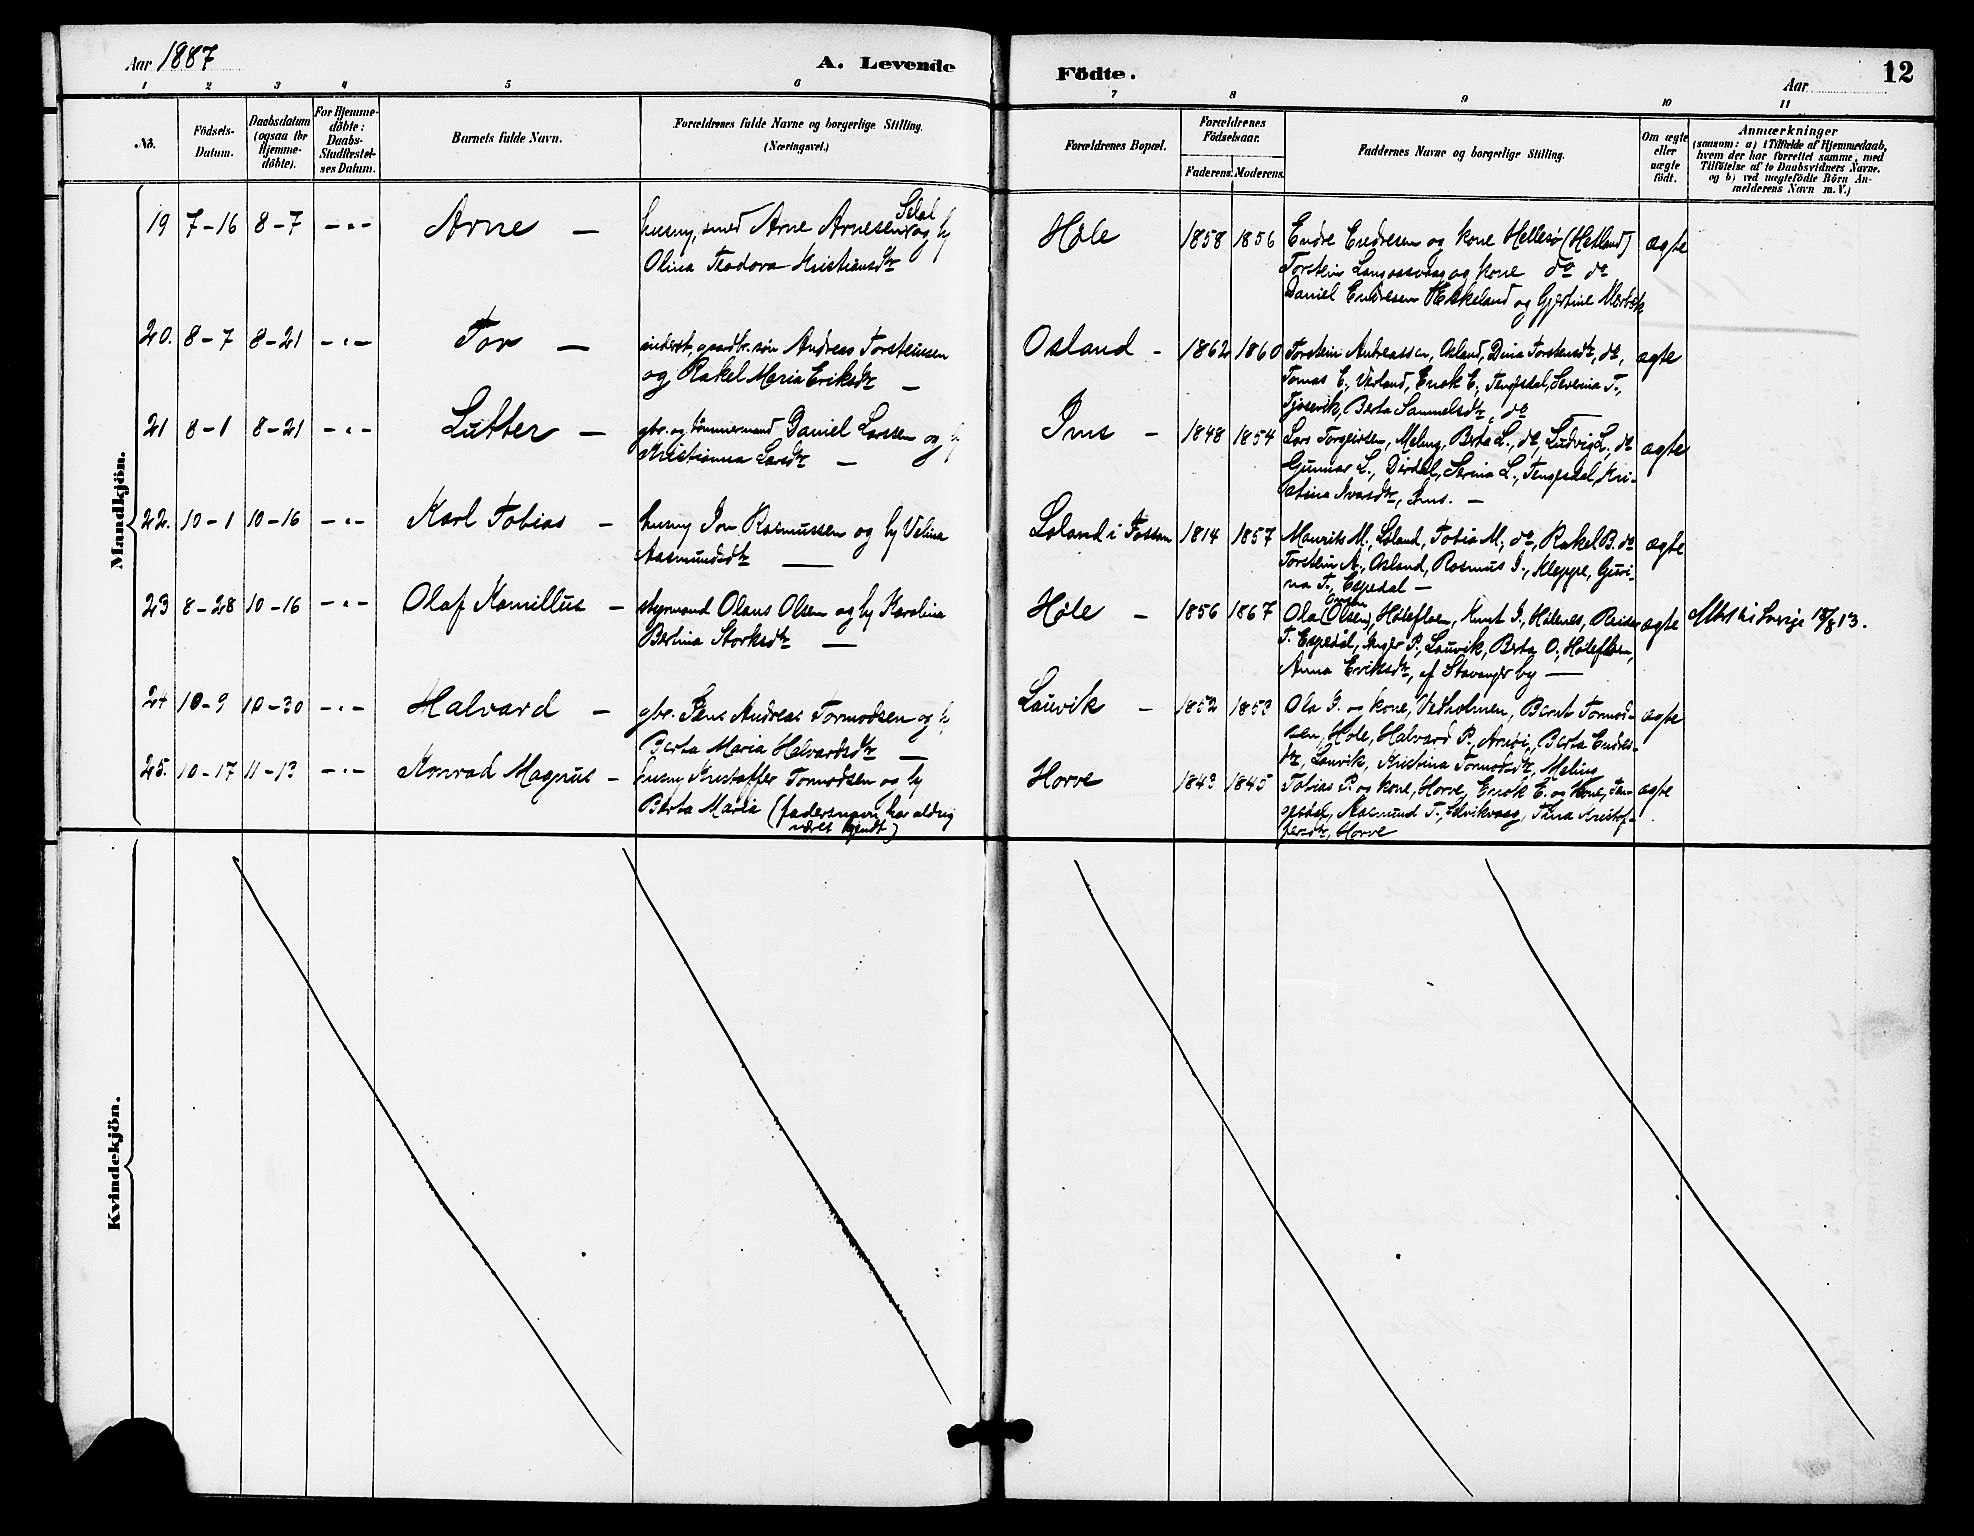 Aar 1887
A. Levende
Födte.
Aar
12
1 2 3 4 5 6 7 8 9 10 11
No.
Födsels-
Datum.
Daabsdatum
(ogsaa for
Hjemme-
döbte).
For Hjemme-
döbte:
Daabs-
Stadfæstel-
ses Datum.
Barnets fulde Navn.
Forældrenes fulde Navne og borgerlige Stilling.
(Næringsvei.)
Forældrenes Bopæl.
Forældrenes
Födselsaar.
Faderens. Moderens.
Faddernes Navne og borgerlige Stilling.
Om ægte
eller
uægte
født.
Anmærkninger
(saasom: a) i Tilfælde af Hjemmedaab,
hvem der har forrettet samme, med
Tilföielse af to Daabsvidners Navne.
og b) ved uægtefödte Börn An-
melderens Navn m. V.)
Mandkjön.
19 7-16 8-7 -"- Arne -
husmd, smed Arne Arnesen og h
Olina Teodora Kristiansdtr
Höle 1858 1856
Endre Endresen og kone Hellesö (Hetland)
Torstein og kone do do
Daniel Endresen Eskeland og Gjertine
ægte
20. 8-7 8-21 -"- Tor -
inderst, gaardbr. søn Andreas Torsteinsen
og Rakel Maria Eriksdtr -
Osland - 1862 1860
Torstein Andreassen, Osland, Dina Torsteinsdtr, do,
Tomas E., Verland, Enok E., Tengesdal, Severina T.,
Tjosevik, Berta Samuelsdtr, do
ægte
21 8-1 8-21 -"- Lutter -
gbr. og tömmermand Daniel Larsen og h
Kristianna Larsdtr -
Ims - 1848 1854
Lars Torgeirsen, Meling, Berta L., do, Ludvig L., do
Gunnar L., Dirdal, Serina L., Tengesdal, Kri-
stina Ivarsdtr, Ims. -
ægte
22. 10-1 10-16 -"- Karl Tobias -
husmd Jon Rasmussen og h Velina
Aasmundsdtr -
Löland i Fossan 1814 1857
Maurits M., Löland, Tobia M., do, Rakel B. do
Torstein A., Osland, Rasmus J., Kleppe, Guri-
na T., Espedal -
ægte
23 8-28 10-16 -"- Olaf Kamillus -
styrmand Olaus Olsen og h Karolina
Bertina Storksdtr -
Höle - 1856 1867
Ola (Olsen), Höleflöen, Knut J., Hölenes, Reidar
T. Espedal, Inger P., Lauvik, Berta O., Höleflöen,
Anna Eriksdtr, af Stavanger by -
ægte
Attest til Sverige 18/8 13.
24 10-9 10-30 -"- Halvard -
gbr. Jens Andreas Tormodsen og h
Berta Maria Halvardsdtr -
Lauvik - 1852 1853
Ola G. og kone, Vadholmen, Bernt Tormod-
sen, Höle, Halvard P., Arnöi, Berta Endres-
dtr, Lauvik, Kristina Tormodsdtr, Meling
ægte
25. 10-17 11-13 -"- Konrad Magnus -
husmd Kristoffer Tormodsen og h
Berta Maria (fadersnavn har aldrig
været kjendt)
Horve 1843 1845
Tobias P. og kone, Horve, Enok E. og Kone, Ten-
gesdal, Aasmund T., Selvikvaag, Tina Kristof-
fersdtr, Horve
ægte
Kvindekjön.